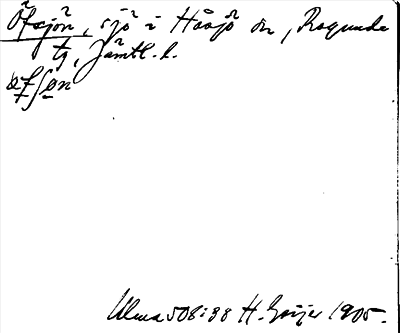 Öfsjön, sjö i Håsjö sn, Ragunda
tg, Jämtl. l.
Ulma 508:38 H. Geijer 1905.